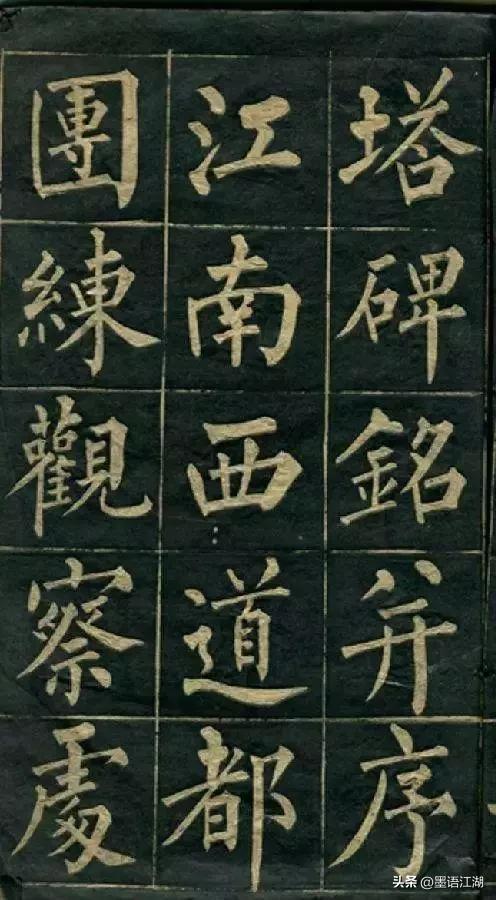 塔碑銘并序
江南西道都
團練觀察處
头条 @墨语江湖